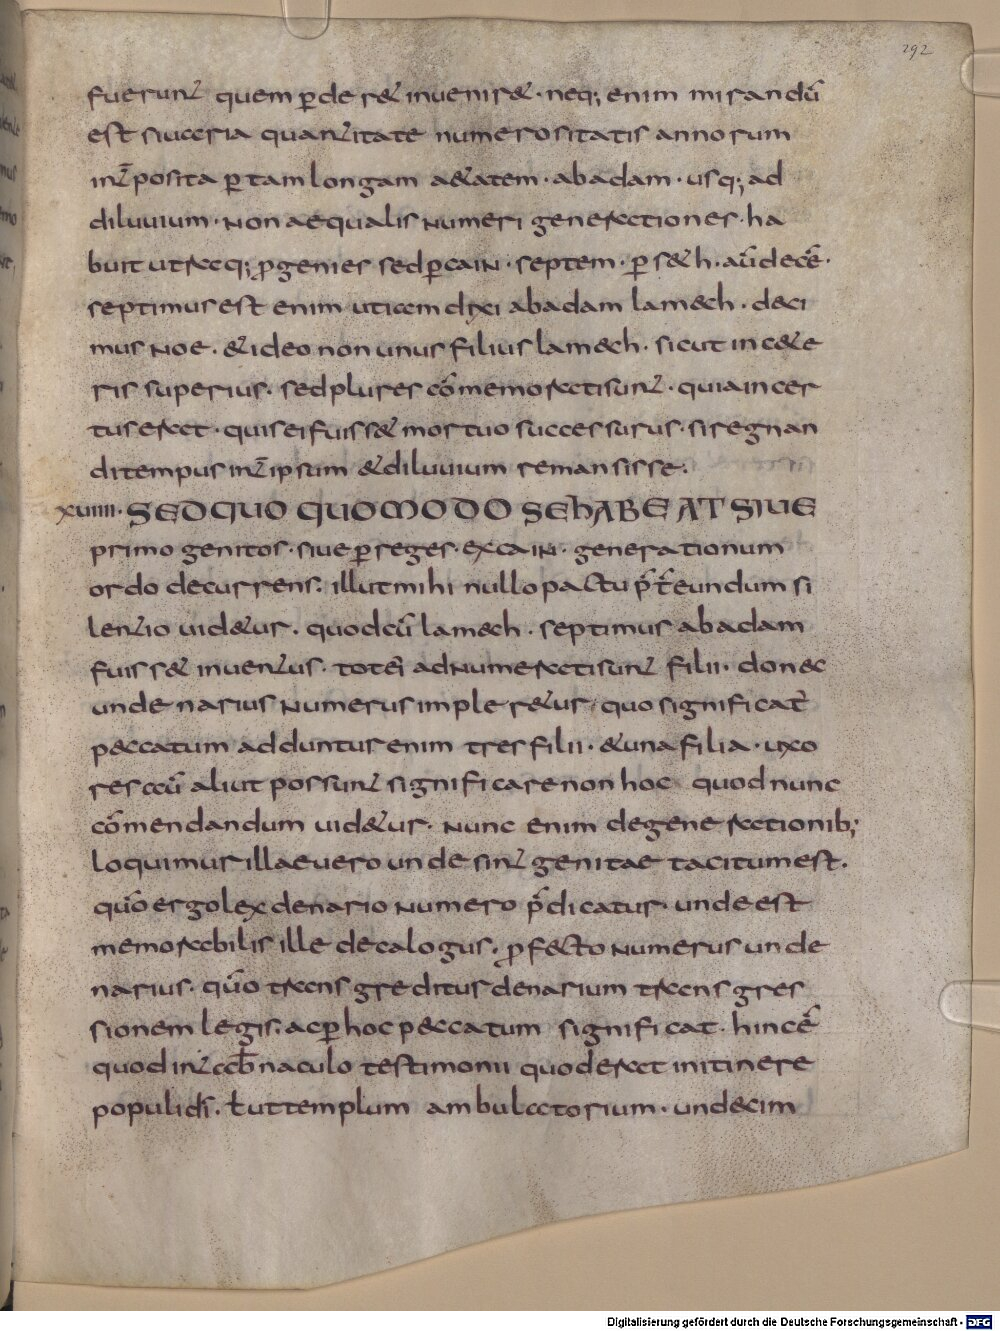 292
fuerunt quem ꝑderet inueniret · neq; enim mirandū
est siuaria quantitate numerositatis annorum
int̄posita ꝑtamlongam aetatem · abadam · usq; ad
diluuium · non aequalis numeri generationes · ha
buit utraq; ꝓgenies sed ꝑcain · septem · ꝑ seth · aūdecē ·
septimus est enim uticem dixi abadam lamech · deci
mus noe · &ideo non unus filius lamech · sicut in cete
ris superius · sed plures cōmemorati sunt · quia incer
tus erat · quis ei fuisset mortuo successurus · si regnan
di tempus int̄ ipsum &diluuium remansisse ·
xuiiii · SED QUO QUOMODO SEHABEAT SIUE
primo genitos · siue ꝑ reges · excain · generationum
ordo decurrens · illut mihi nullo pactu p̄t̄eundum si
lentio uidetur · quod cū lamech · septimus abadam
fuisset inuentus · tot eī adnumerati sunt filii · donec
undenarius numerus impleretur · quo significat̄
peccatum adduntur enim tres filii · &una filia · uxo
res aū aliut possunt significare non hoc quod nunc
cōmendandum uidetur · nunc enim degenerationib;
loquimur illae uero unde sint genitae tacitum est ·
qūo ergo lex denario numero p̄dicatur · unde est
memorabilis ille decalogus · ꝓfecto numerus unde
narius · qūo transgreditus denarium transgres
sionem legis · ac ꝑ hoc peccatum significat · hinc ē
quod int̄ab̄naculo testimonii quod erat initinere
populi dī · t̄ut templum ambulatorium · undecim
Digitalisierung gefördert durch die Deutsche Forschungsgemeinschaft - DFG